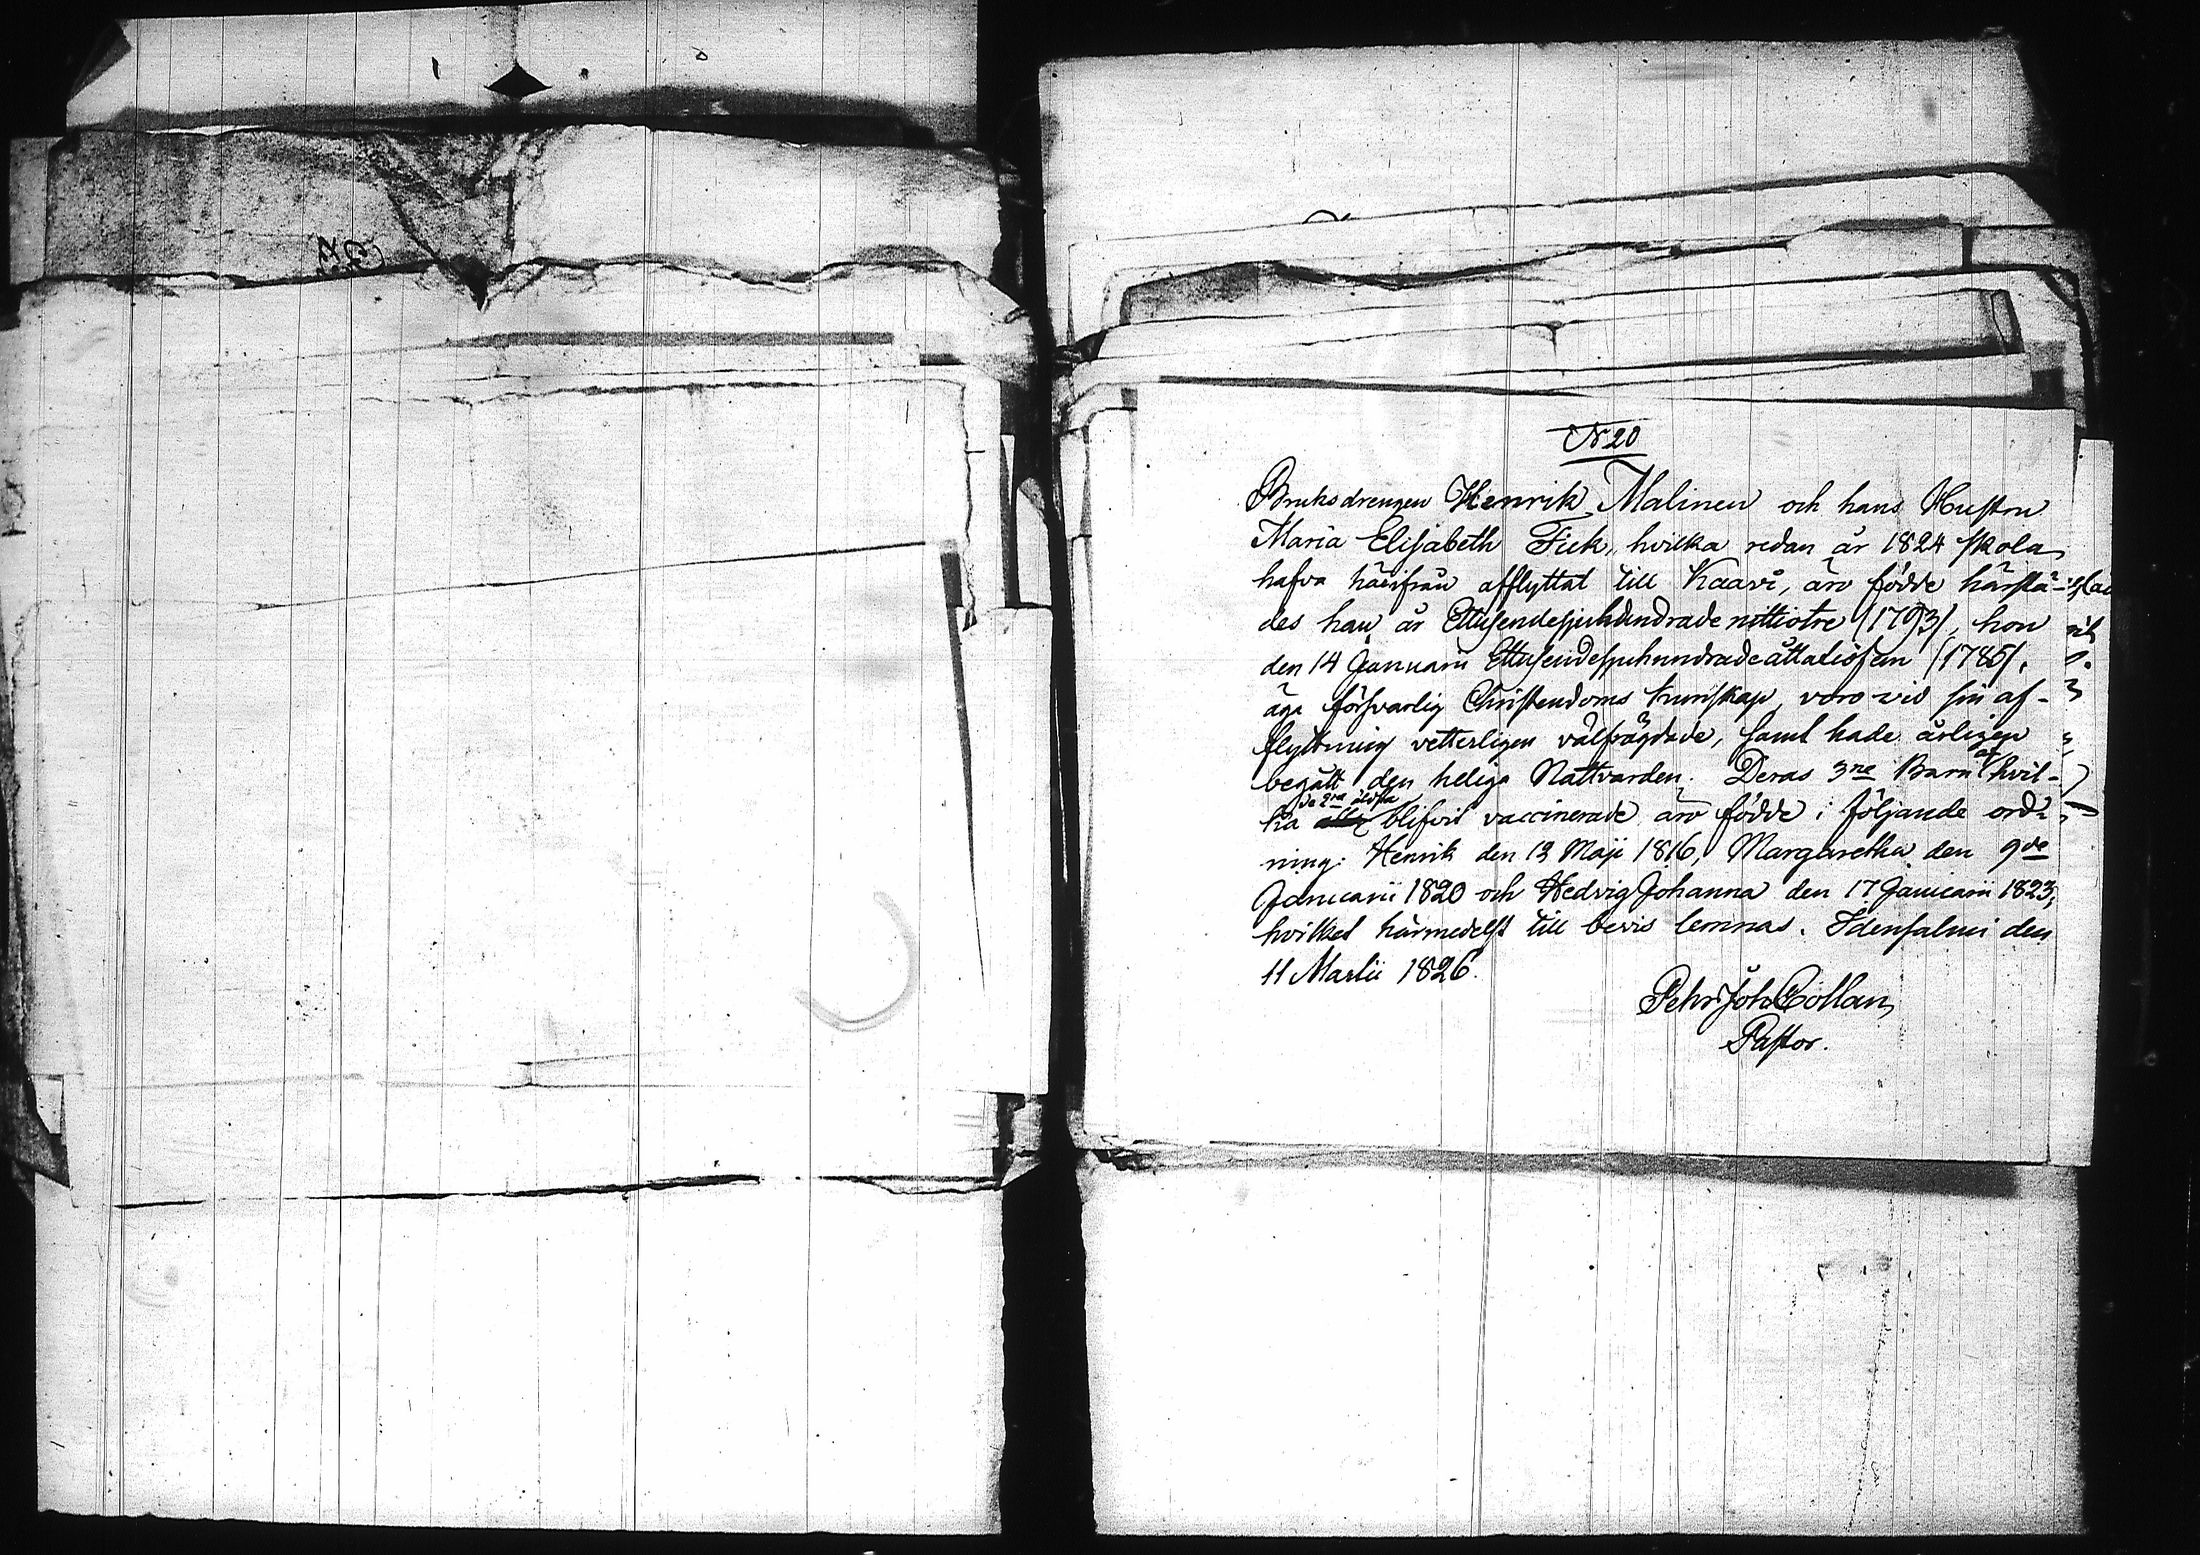 N 20
Bruksdrengen Henrik Malinen och hans Hustru
Maria Elisabeth Fick, hvilka redan år 1824 skola
hafva härifrån afflyttat till Kaavi, äro födde härstä-
des han år Ettusendesjuhundrade nittiotre (1793), hon
den 14 Januarii Ettusendesjuhundradeåttatiofem (1785),
äga försvarlig Christendoms kunskap, voro vid sin af-
flyttning vetterligen välfrägdade, samt hade årligen
begått den heliga Nattvarden. Deras 3ne Barn af hvil-
ka de 2ne äldsta blifvit vaccinerade äro födde i följande ord-
ning: Henrik den 13 Maji 1816, Margaretha den 9de
Januarii 1820 och Hedvig Johanna den 17 Januarii 1823;
hvilket härmedelst till bevis lemnas. Idensalmi den
11 Martii 1826.
Pehr Joh Collan
Pastor.